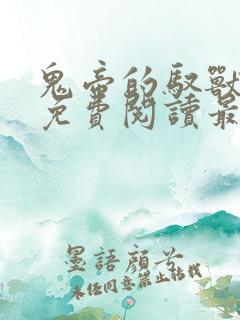 鬼帝的馭獸
免費閱讀最
墨語顏兮
未任同意禁止轉載